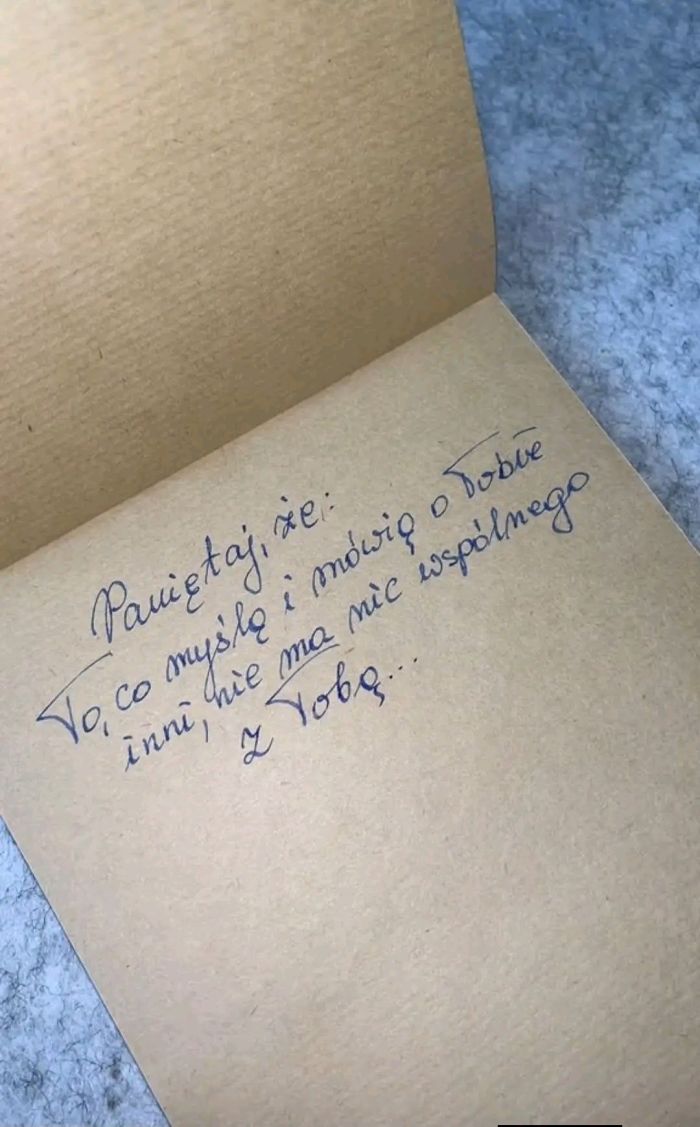 Pamiętaj, że:
To, co myślą i mówią o Tobie
inni, nie ma nic wspólnego
z Tobą...